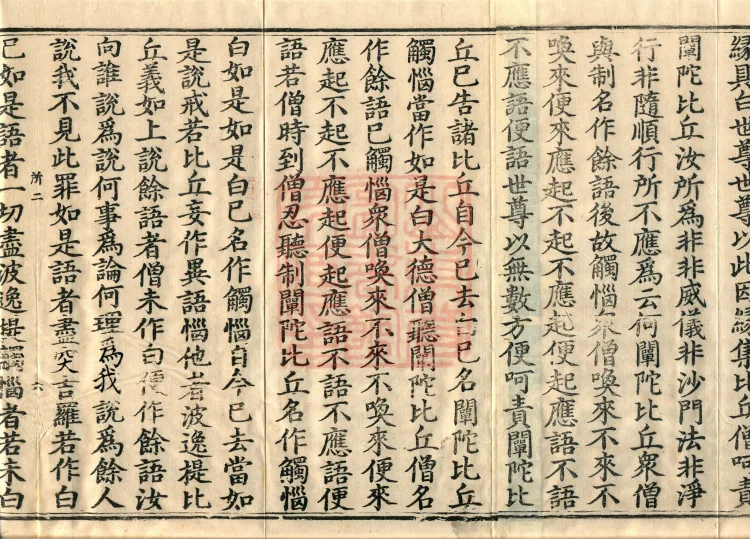 緣具白世尊世尊以此因緣集比丘僧呵責
闡陀比丘汝所為非非威儀非沙門法非淨
行非隨順行所不應為云何闡陀比丘眾僧
與制名作餘語後故觸惱眾僧喚來不來不
喚來便來應起不起不應起便起應語不語
不應語便語世尊以無數方便呵責闡陀比
丘已告諸比丘自今已去白已名闡陀比丘
觸惱當作如是白大德僧聽闡陀比丘僧名
作餘語已觸惱眾僧喚來不來不喚來便來
應起不起不應起便起應語不語不應語便
語若僧時到僧忍聽制闡陀比丘名作觸惱
白如是如是白已名作觸惱自今已去當如
是說戒若比丘妄作異語惱他者波逸提比
丘義如上說餘語者僧未作白便作餘語汝
向誰說為說何事為論何理為我說為餘人
說我不見此罪如是語者盡突吉羅若作白
所二 六
已如是語者一切盡波逸提觸惱者若未白